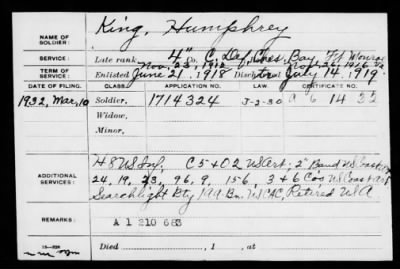 NAME OF SOLDIER: King, Humphrey
SERVICE: Late rank, 4" Co, C. Def, Ches. Bay, Ft Monroe
Nov. 23, 1912
TERM OF SERVICE: Enlisted June 21, 1918 Discharged July 14, 1919.
DATE OF FILING. CLASS. APPLICATION NO. LAW. CERTIFICATE NO.
1932, Mar, 10 Soldier, 1714324 3-2-30 a 6 14 32
Widow,
Minor,
ADDITIONAL SERVICES: H S US Inf; C 5 + 02 US Art; 2" Band US Coast Art
24, 19, 23, 96, 9, 156, 3 + 6 Co's US Coast Art
Searchlight Bty 199 Bn. USCAC, Retired USA
REMARKS: A 1 210 683
Died , 1 , at